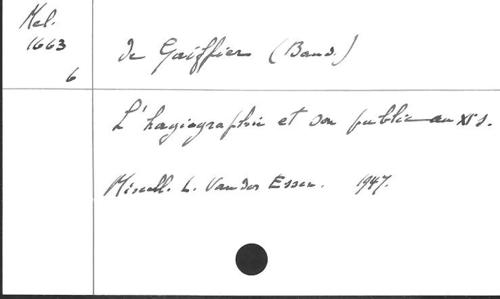 Mel.
1663
6
de Gaiffier (Baud.)
L'hagiographie et son public au XIe s.
Miscell. L. Van der Essen. 1947.